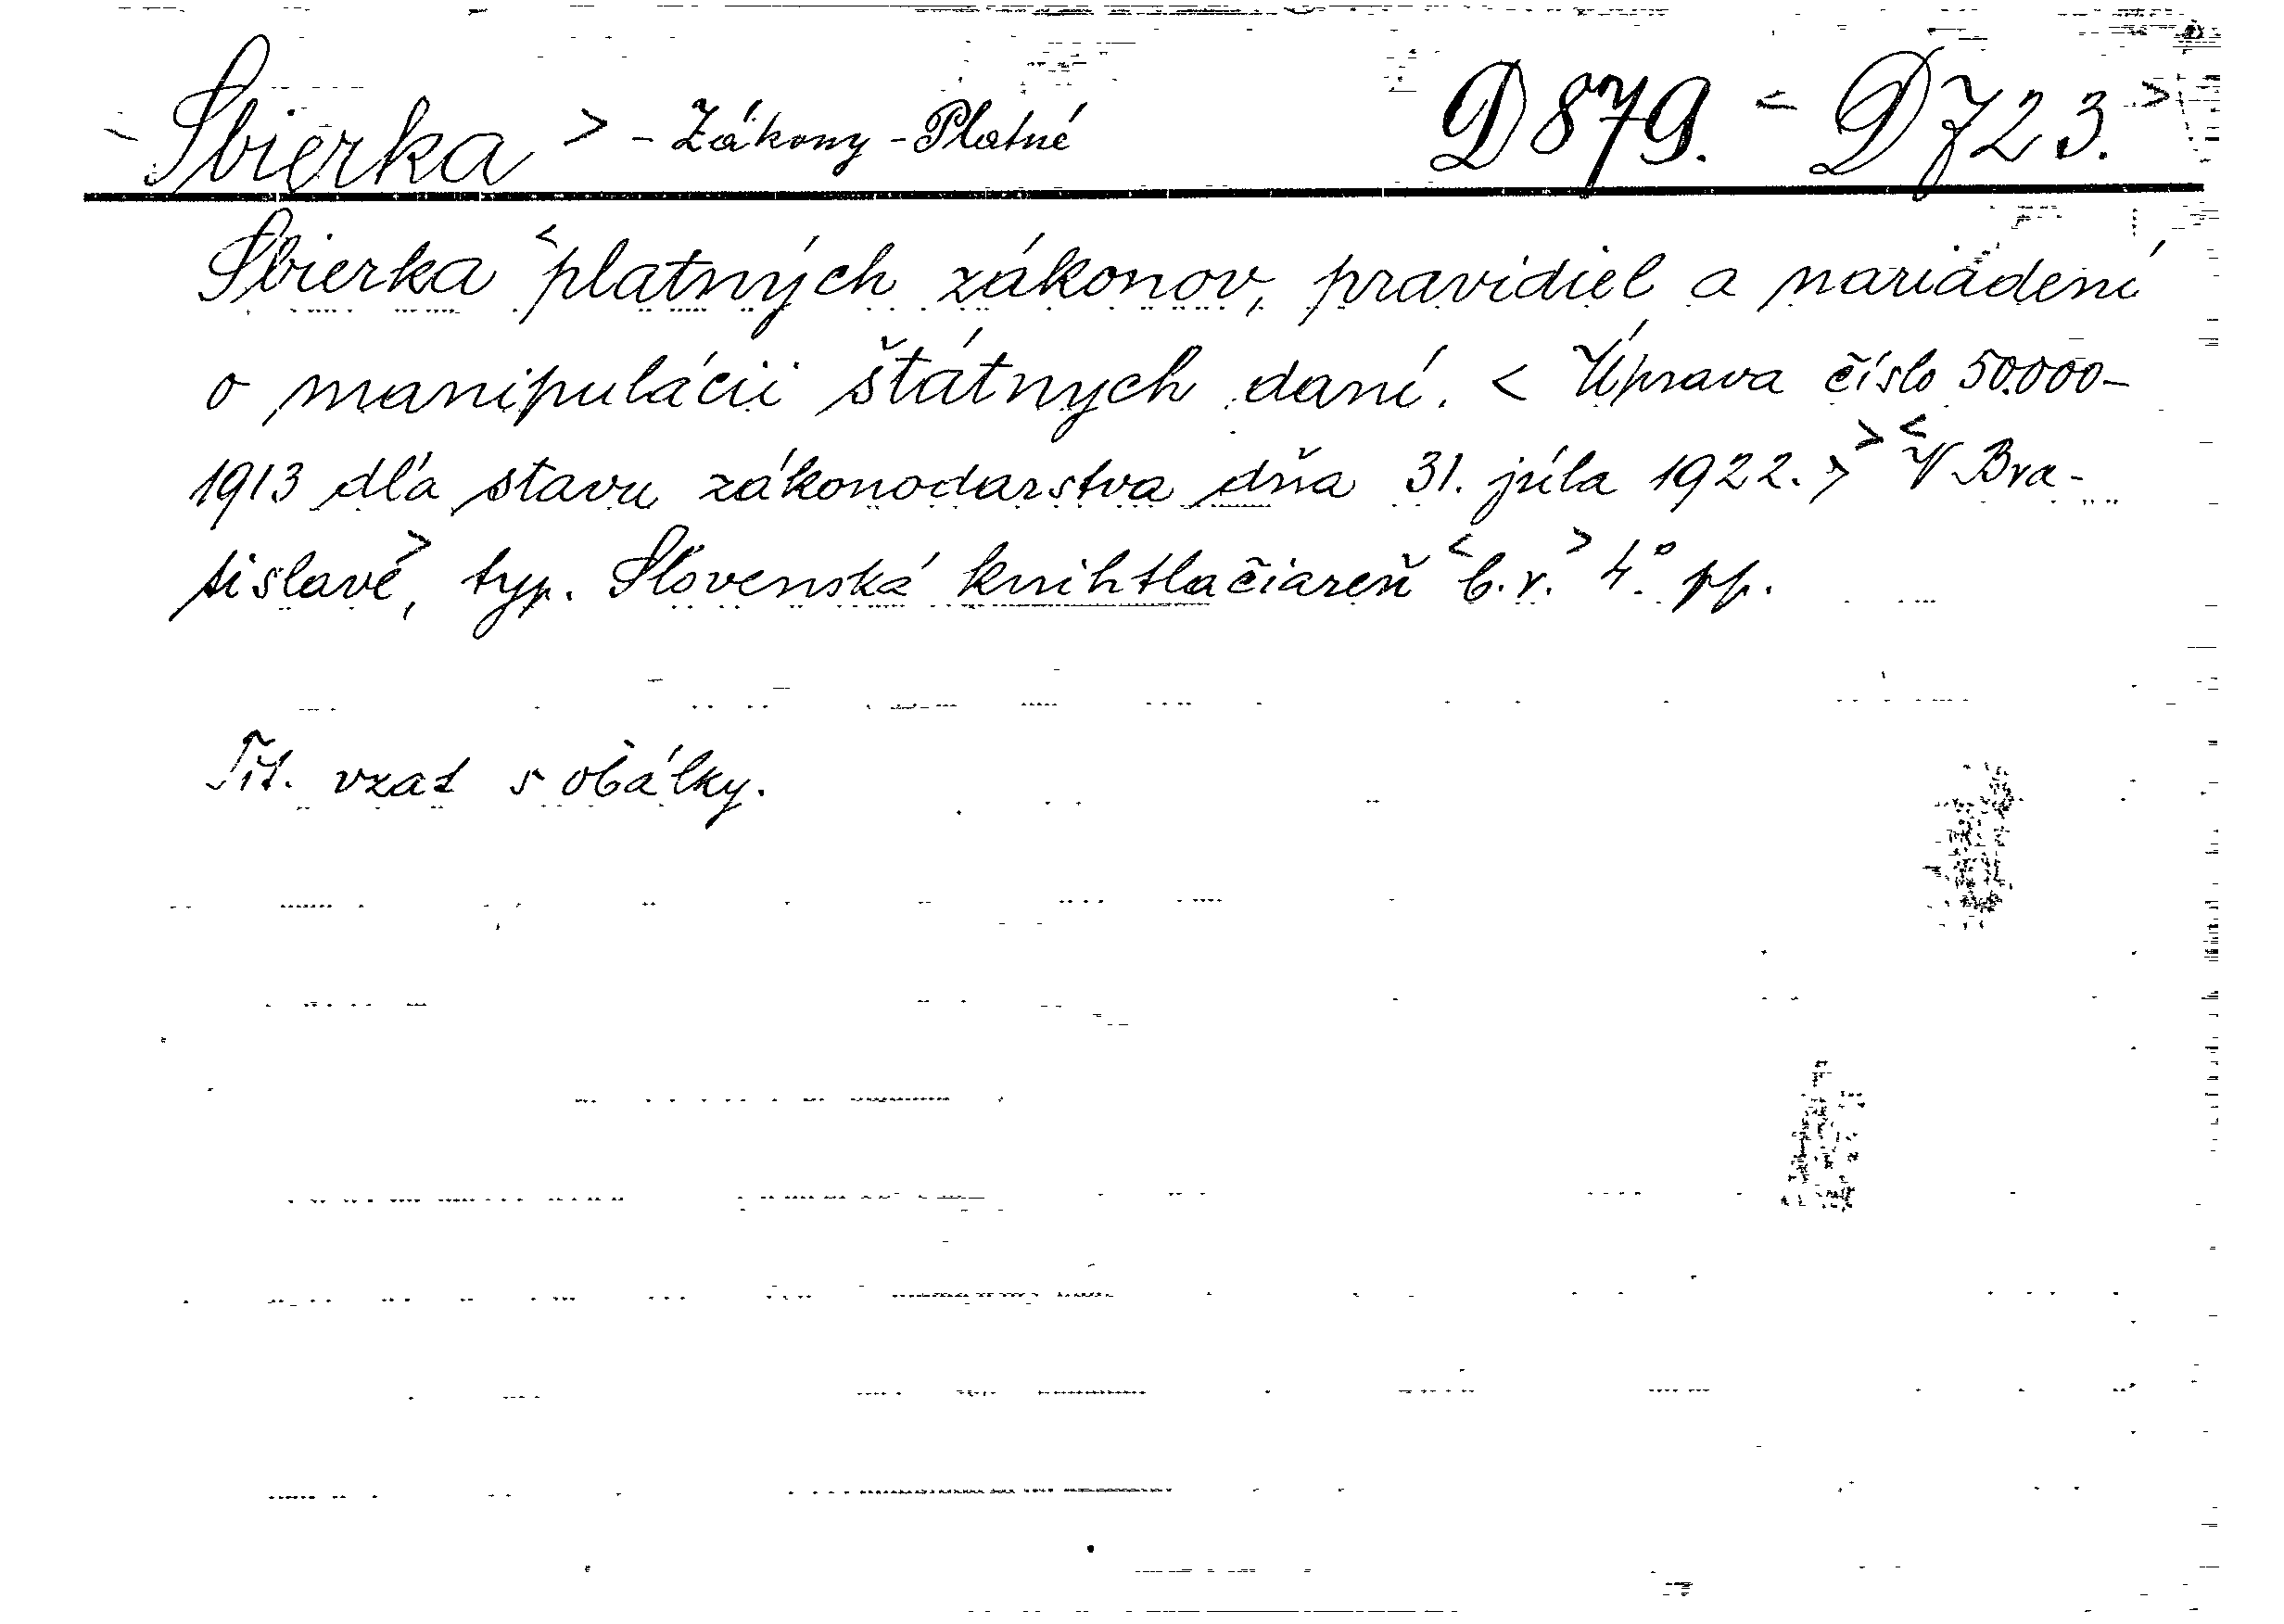 < Sbierka > - Zákony - Platné D 879. < D 723. >
Sbierka < platných zákonov, pravidiel a nariadení
o manipulácii štátnych daní. < Úprava číslo 50.000-
1913 dľa stavu zákonodarstva dňa 31. júla 1922. > > < V Bra-
tislavě >, typ. Slovenská knihtlačiareň < b. r. > 4°. pp.
Tit. vzat s obálky.